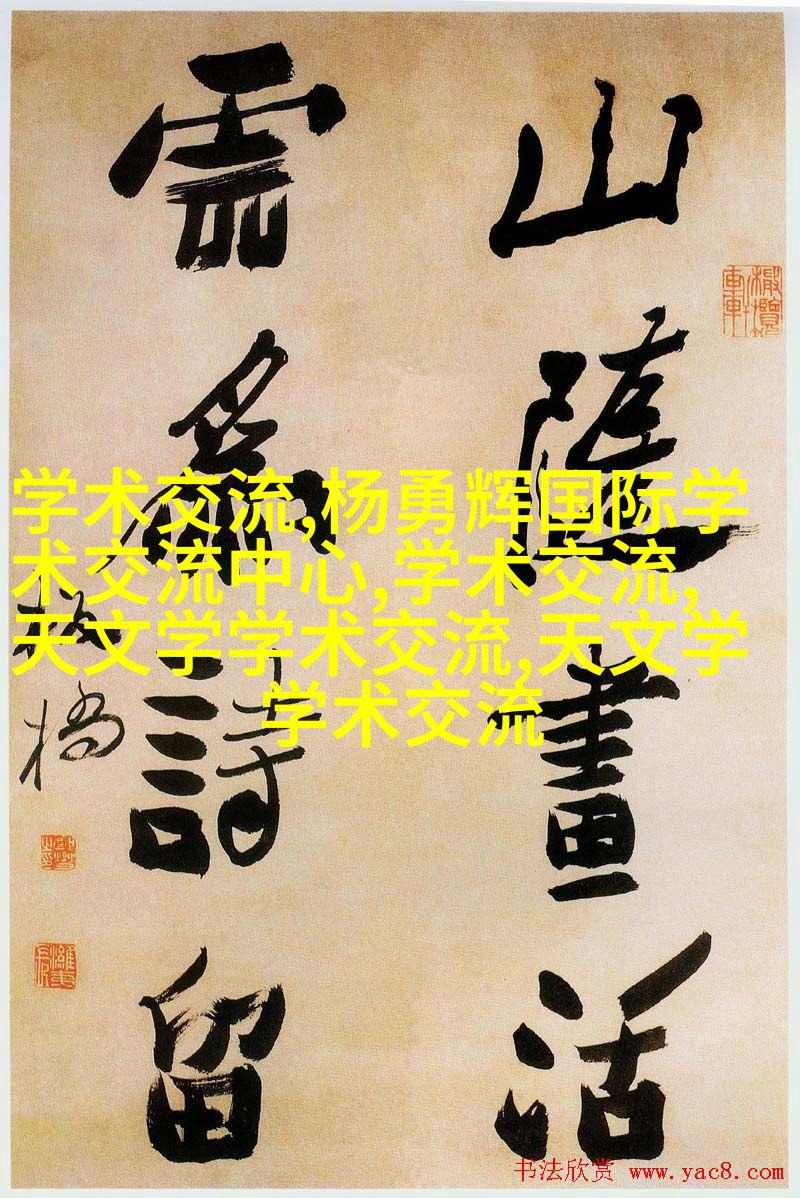 山随畫活
雲為詩留
板橋
学术交流,杨勇辉国际学
术交流中心,学术交流,
天文学学术交流,天文学
学术交流
书法欣赏 www.yac8.com